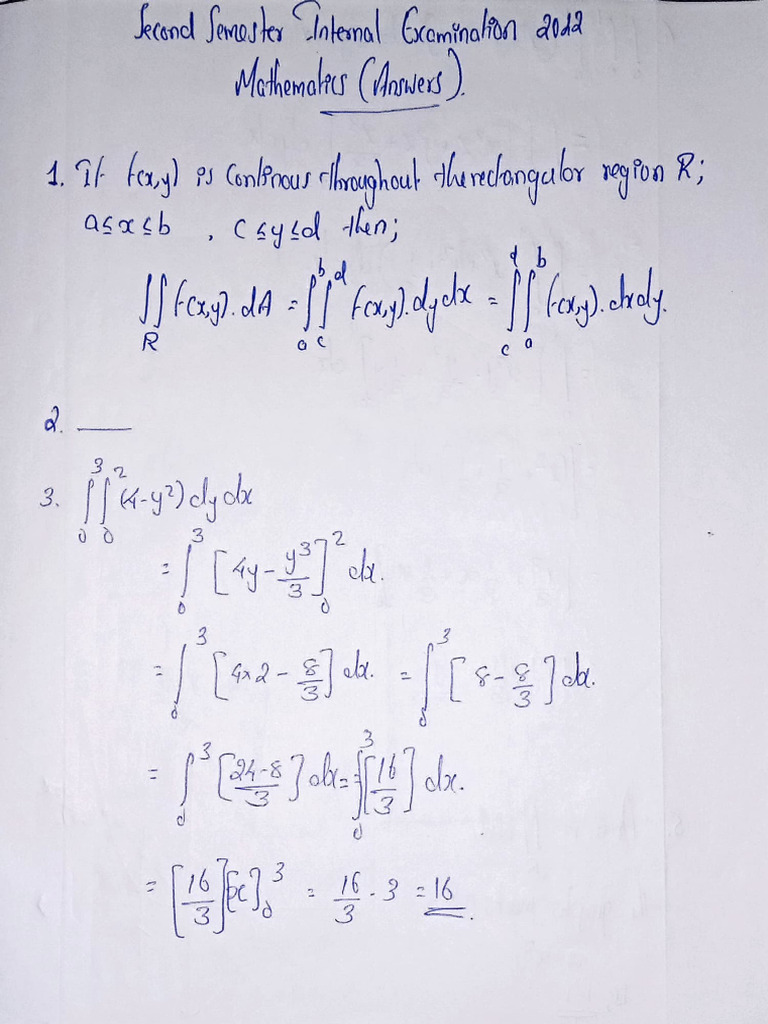 Second Semester Internal Examination 2022
Mathematics (Answers).
1. If f(x,y) is Continous throughout the rectangular region R;
a≤x≤b , c≤y≤d then;
∬_R f(x,y).dA = ∫_a^b ∫_c^d f(x,y).dydx = ∫_c^d ∫_a^b f(x,y).dxdy.
2. —
3. ∫_0^3 ∫_0^2 (4-y²) dydx
= ∫_0^3 [4y - y³/3]_0^2 dx.
= ∫_0^3 [4x2 - 8/3] dx. = ∫_0^3 [8 - 8/3] dx.
= ∫_0^3 [24-8/3] dx = ∫_0^3 [16/3] dx.
= [16/3][x]_0^3 = 16/3 . 3 = 16.